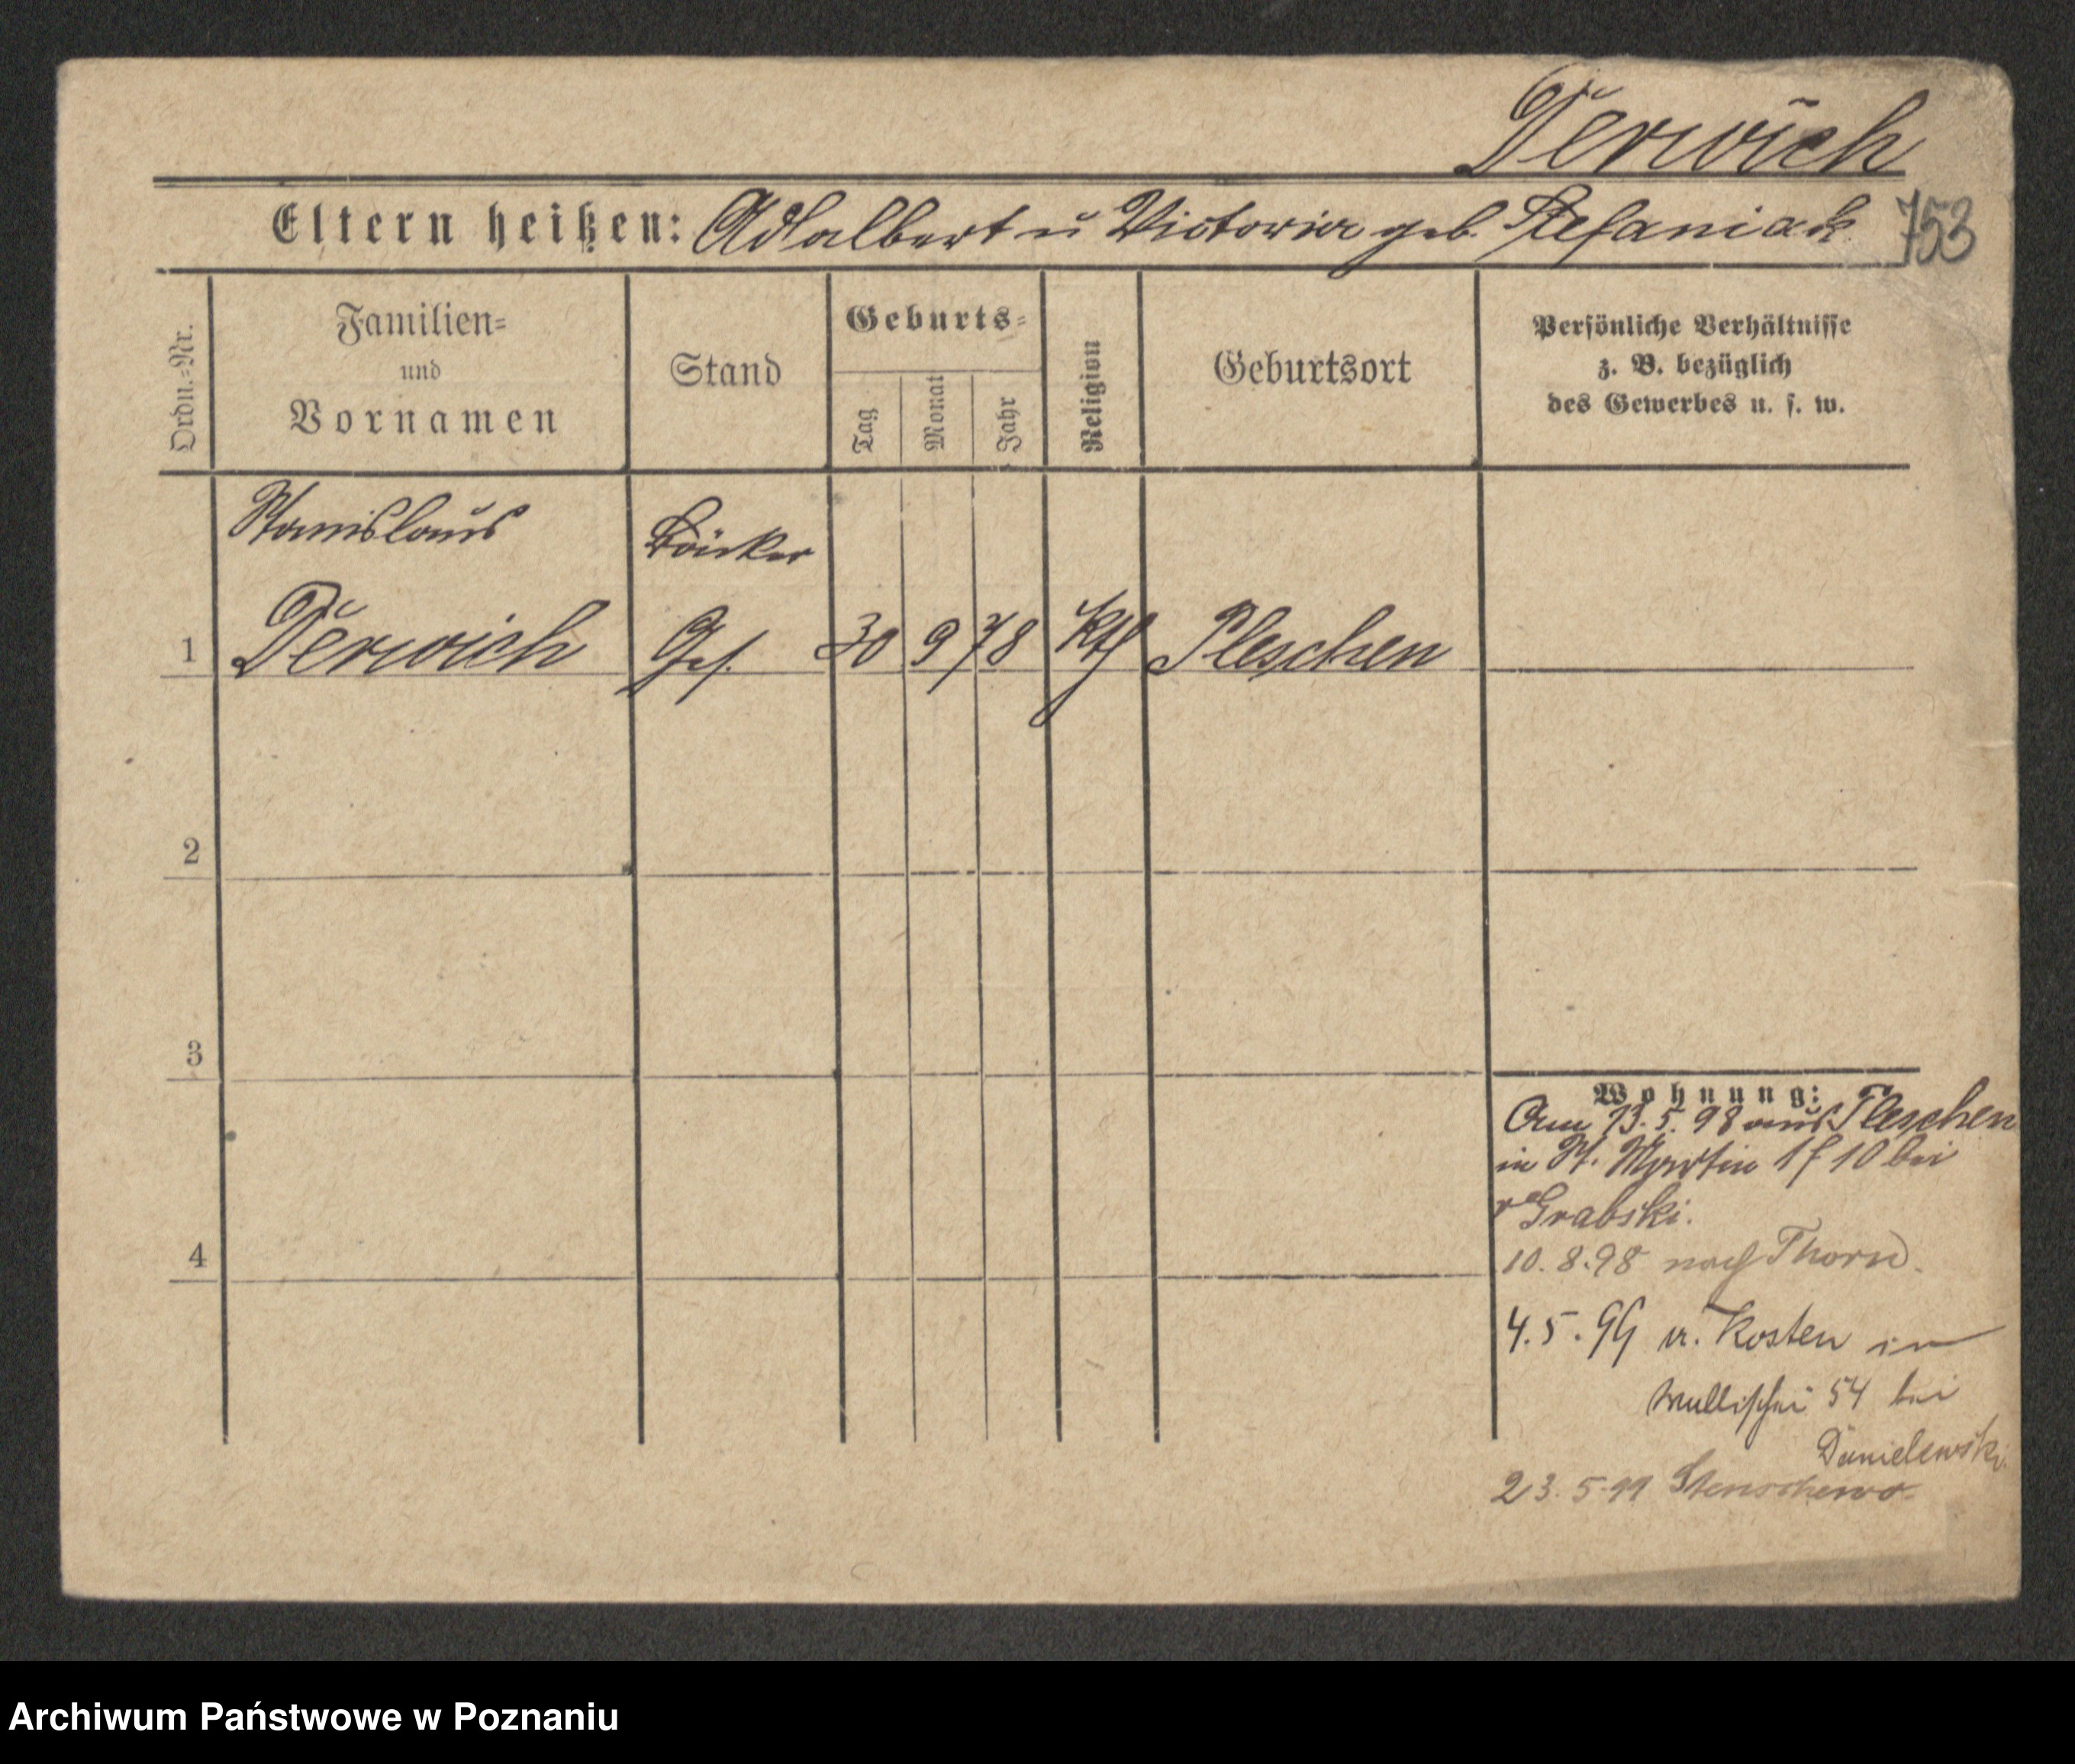 Derwich
Eltern heißen: Adalbert u Victoria geb. Stefaniak 753
Ordn.-Nr.
Familien-
und
Vornamen
Stand
Geburts-
Tag
Monat
Jahr
Religion
Geburtsort
Persönliche Verhältnisse
z. B. bezüglich
des Gewerbes u. s. w.
Stanislaus Bäcker
1 Derwich Ges. 30 9 78 Kth Pleschen
2
3
4
Wohnung:
Am 13. 5. 98 aus Pleschen
in St. Martin 10 bei
Grabski.
10. 8. 98 nach Thorn.
4. 5. 99 v. Kosten in
Wallischei 54 bei
Danielewski
23. 5. 99 Stenschewo
Archiwum Państwowe w Poznaniu